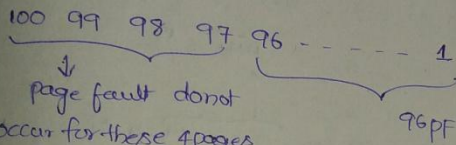 100 99 98 97 96 ------ 1
page fault donot
occur for these 4 pages
96 PF